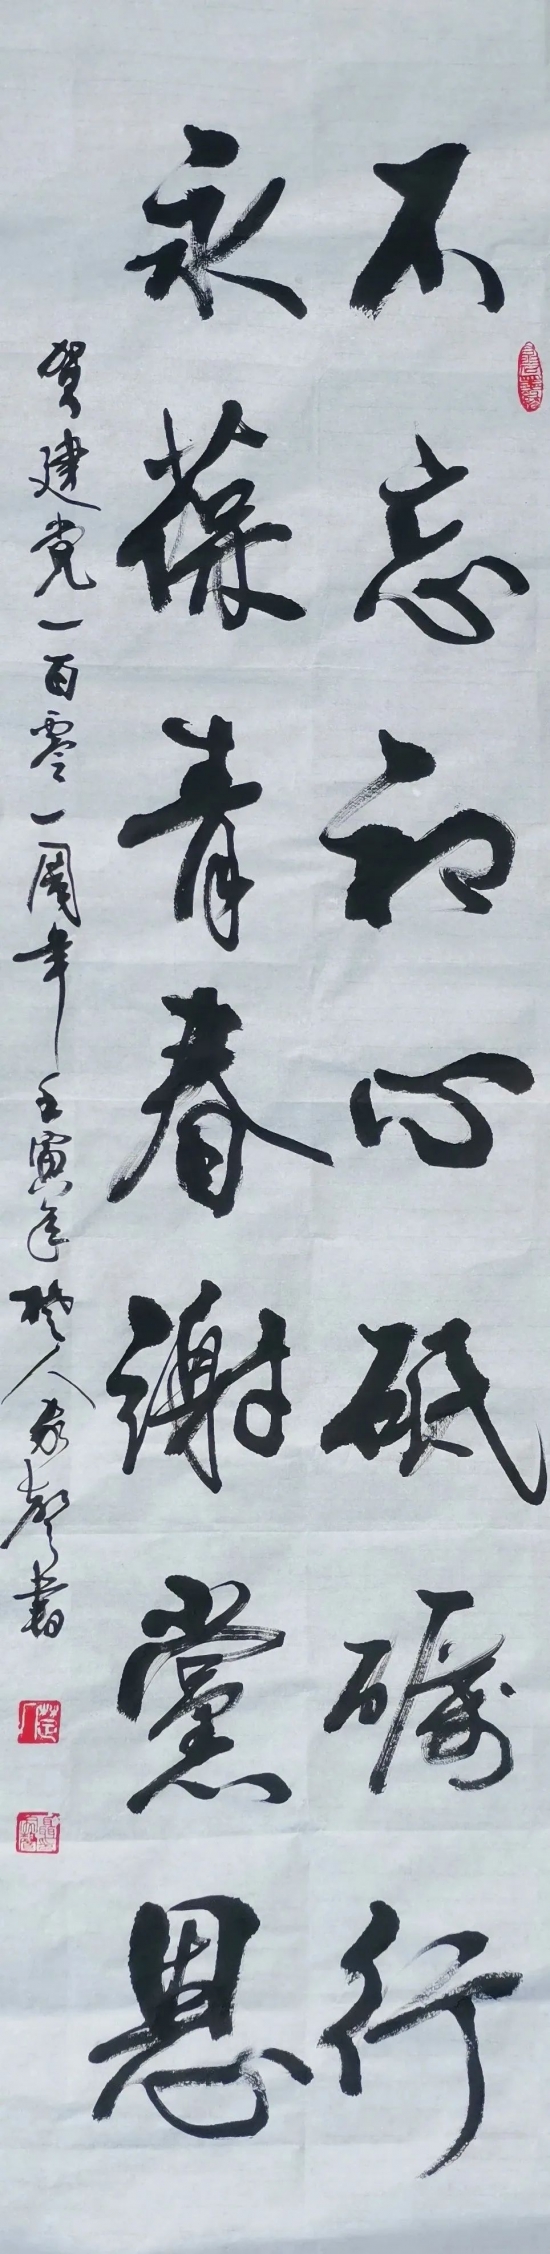 不忘初心砥砺行
永葆青春谢黨恩
贺建党一百零一周年 壬寅年 楚人家声书